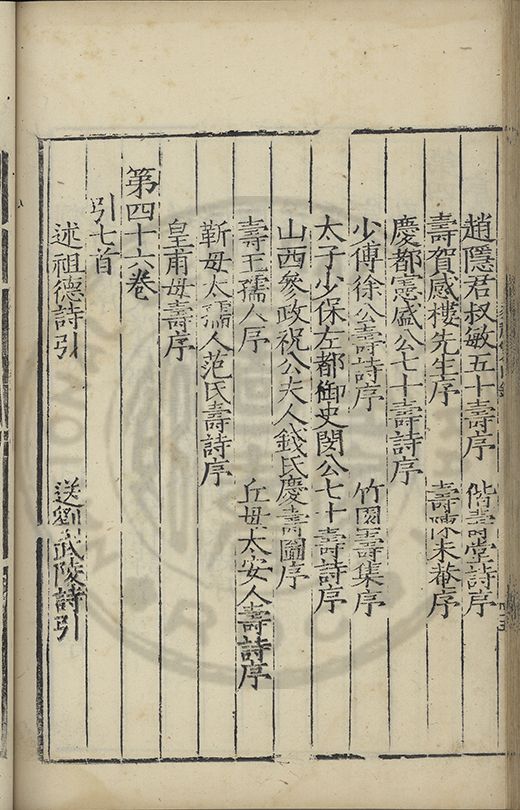 趙隱君叔敏五十壽序　偕壽堂詩序
壽賀感樓先生序　壽陳未菴序
慶都憲盛公七十壽詩序
少傅徐公壽詩序　竹園壽集序
太子少保左都御史閔公七十壽詩序
山西參政祝公夫人錢氏慶壽圖序
壽王孺人序　丘母太安人壽詩序
靳母太孺人范氏壽詩序
皇甫母壽序
第四十六卷
引七首
述祖德詩引　送劉武陵詩引